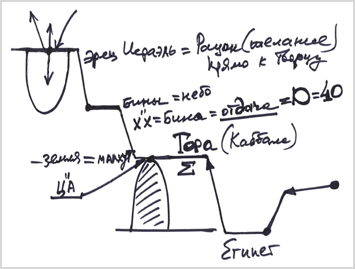 эрец Исраэль = Рацон (желание)
прямо к Творцу
Бина = небо
= Бина = отдача = = 40
Тора (Каббала)
Σ
- земля = малхут
Египет